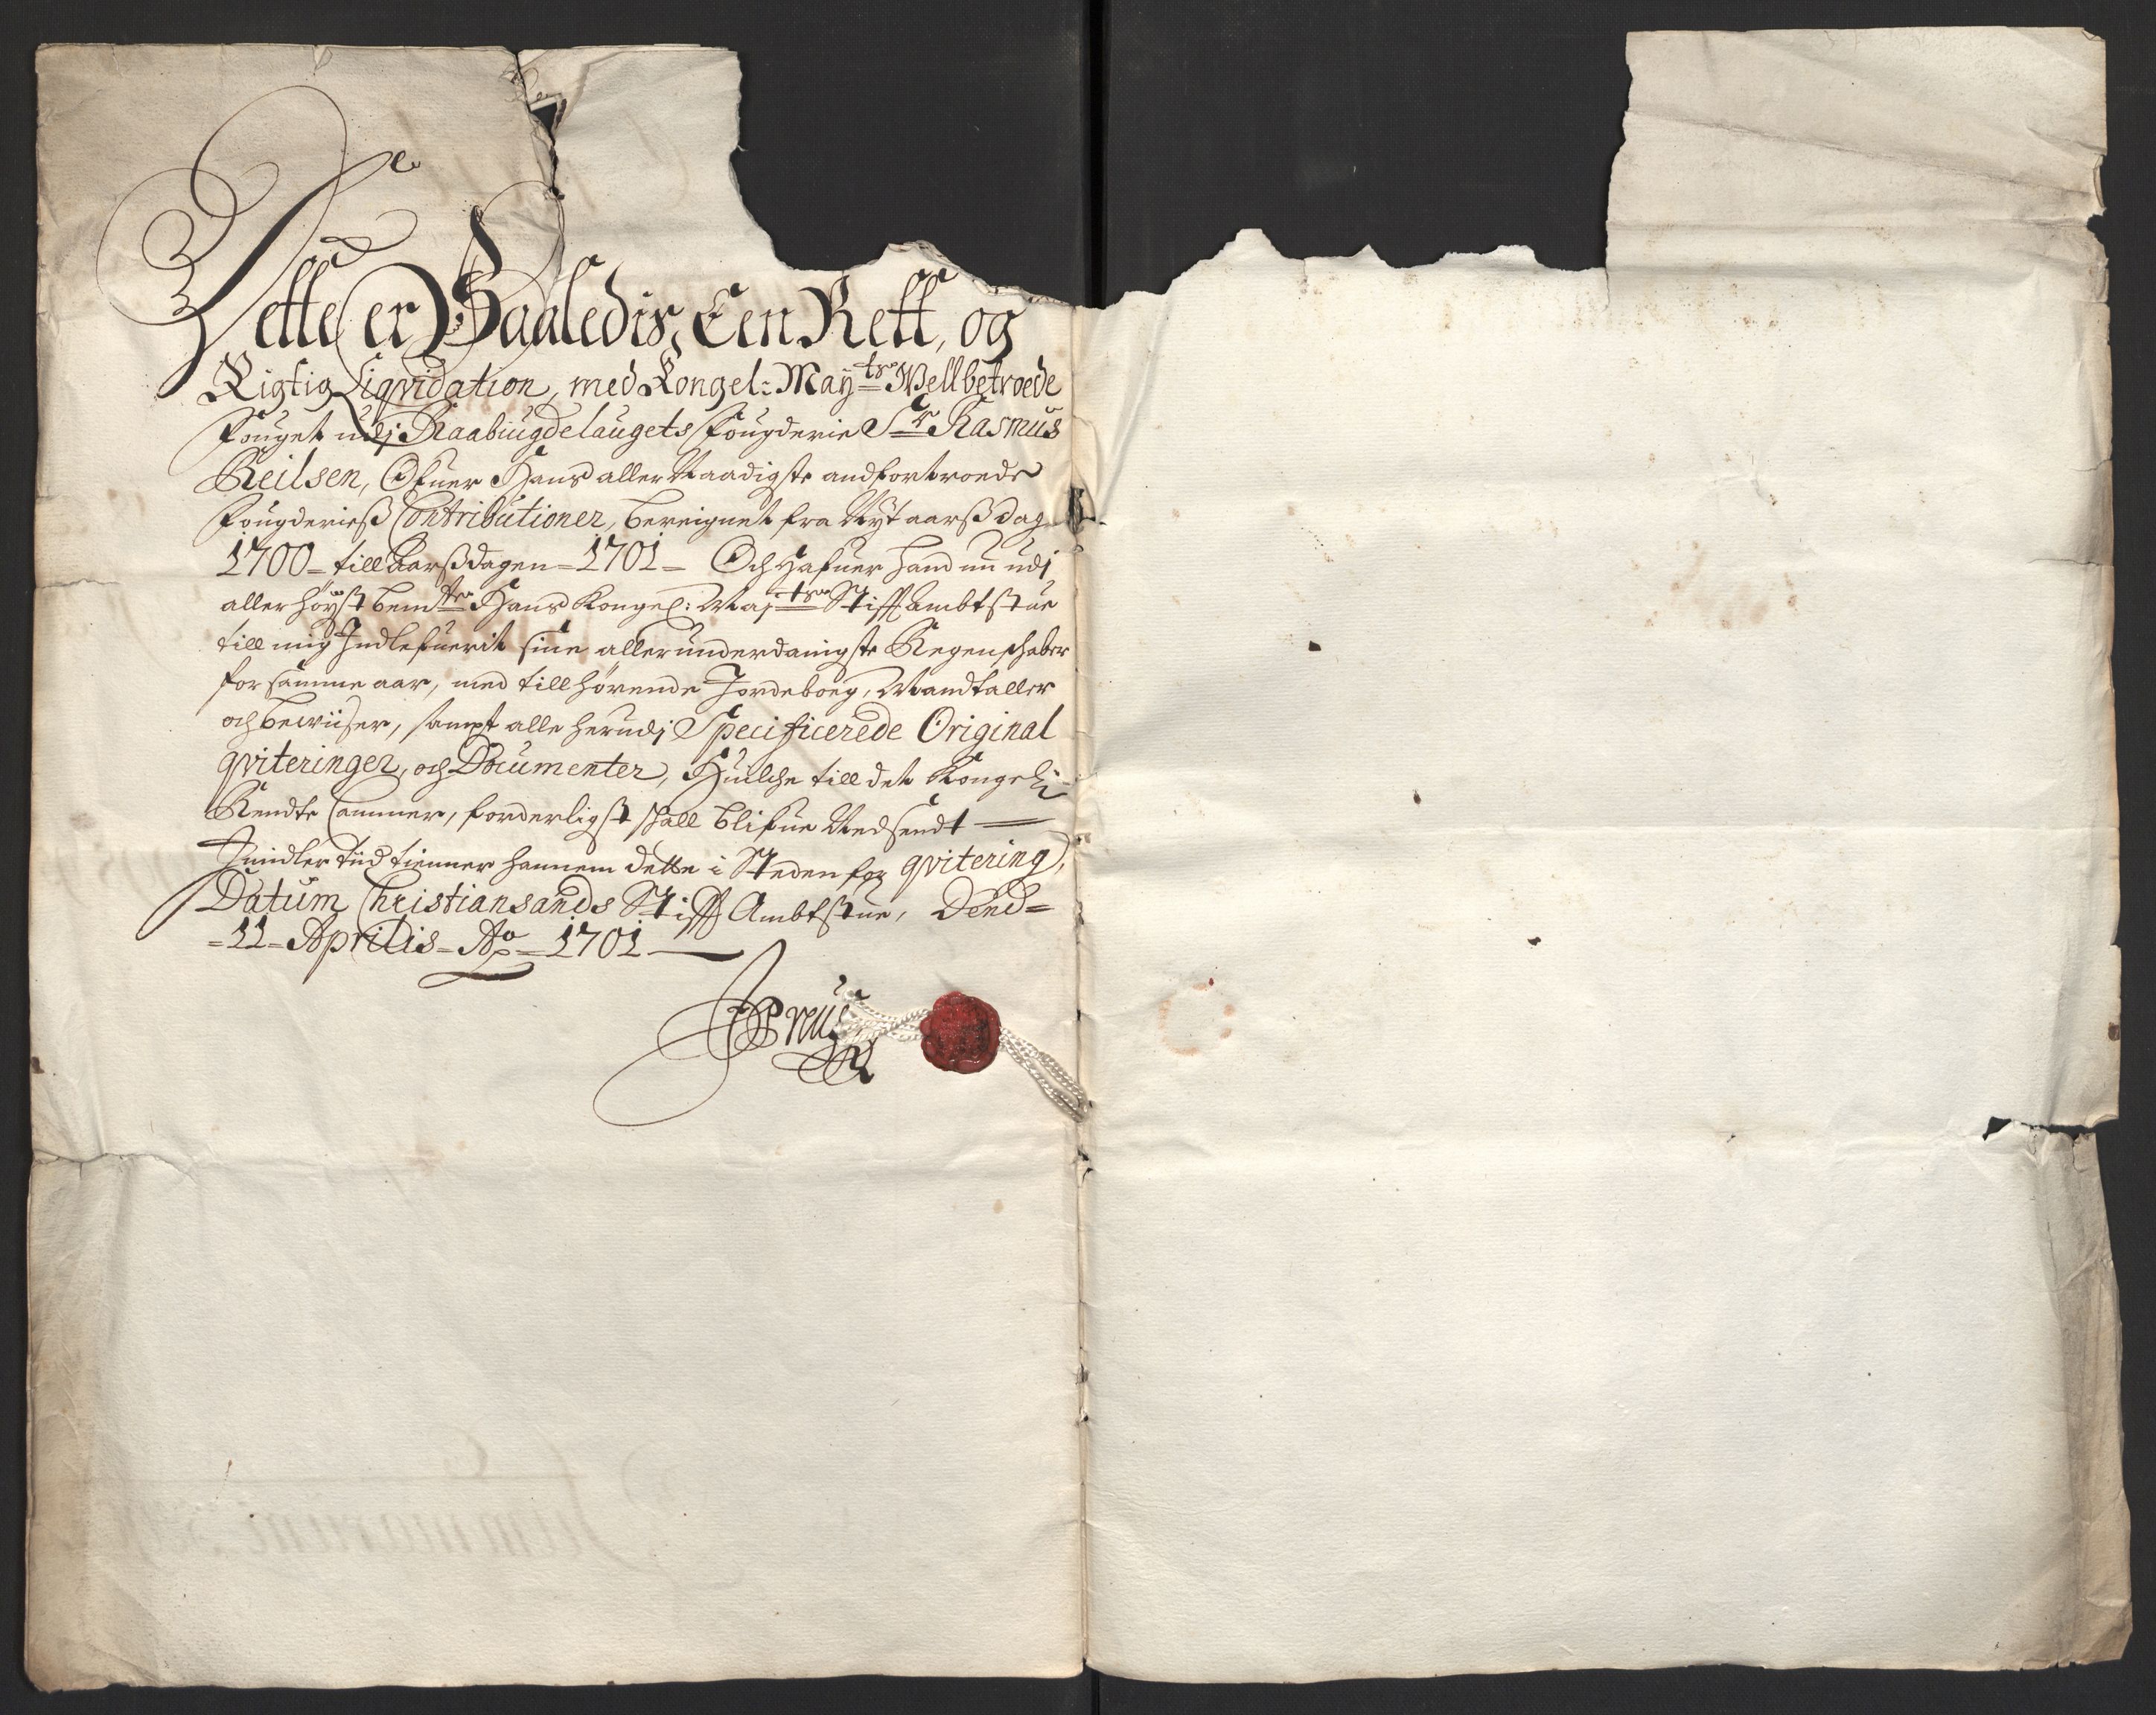 Dette er Saaledis, Een Rett, og
Rigtig Liqvidation, med Kongel: May:tts Vellbetroede
Fouget udj Raabiugdelaugets Fougderie Sr Rasmus
Neilsen, Ofuer Hans aller Naadigste andfortroede
Fougderieß Contributioner, bereignet fra Nÿt aarß dag
1700 - till Aarßdagen - 1701 - Och Hafuer Hand nu udj
aller høyst bemte Hans Kongel: Maj:tts Stifft Ambtstue
till mig Indlefuerit sine allerunderdanigste Regenschaber
for samme aar, med till hørende Jordebog, Mandtaller
och beviiser, sampt alle herudj Specificerede Original
qviteringer, och Documenter, Huilche till det Kongeli:
Rendte Cammer, forderligst schall blifue Nedsendt —
Imidler tiid tienner hannem dette i Steden for qvitering,
Datum Christiansands Stifft Ambtstue, Dend =
= 11 - Aprilis - Ao - 1701 —
Preus